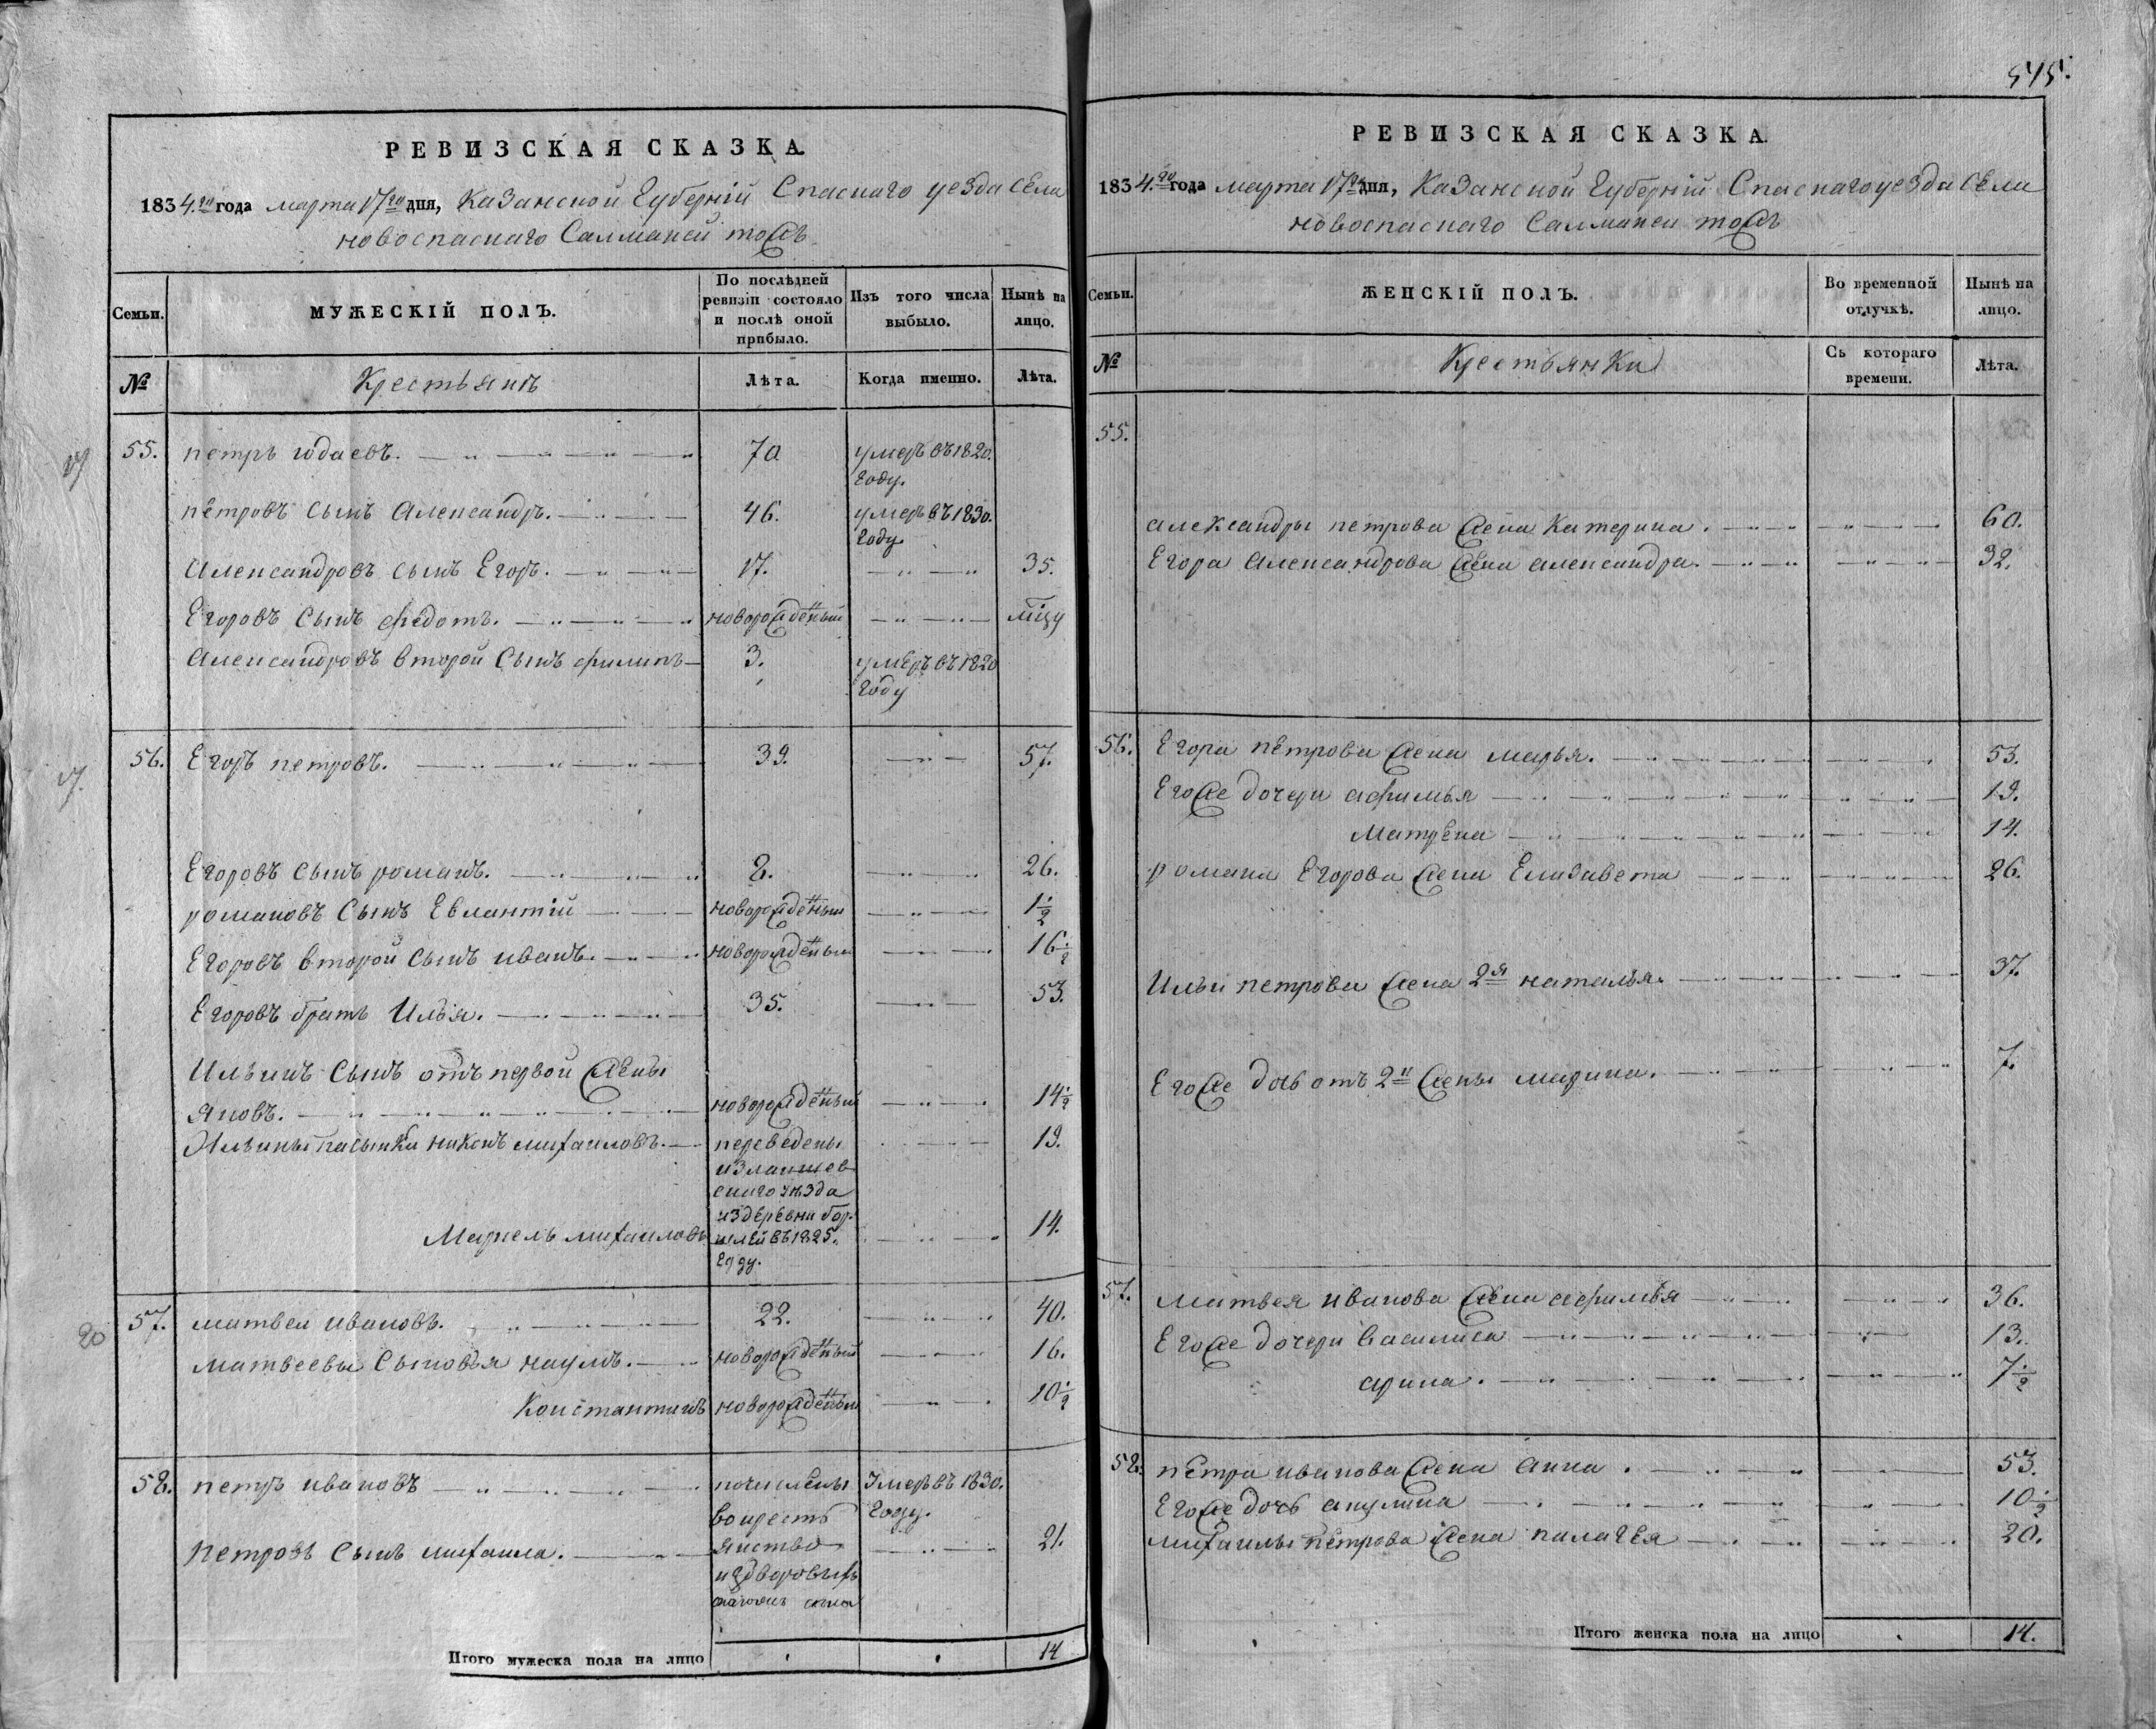 545.
РЕВИЗСКАЯ СКАЗКА.
1834.го года марта 17го дня, Казанской Губерніи Спаскаго уезда Села
новоспаскаго Салманки тожъ
Семьи.
МУЖЕСКІЙ ПОЛЪ.
По послѣдней ревизіи состояло и послѣ оной прибыло.
Изъ того числа выбыло.
Нынѣ на лицо.
№
Крестьянъ
Лѣта.
Когда именно.
Лѣта.
55. петръ юдаевъ. 70 умеръ въ 1820. году.
петровъ Сынъ Александръ. 46. умеръ въ 1830. году.
Александровъ сынъ Егоръ. 17. 35.
Егоровъ Сынъ федотъ. новорожденый мцу
Александровъ второй Сынъ филипъ 3. умеръ въ 1820 году
56. Егоръ петровъ. 39. 57.
Егоровъ сынъ романъ. 8. 26.
романовъ Сынъ Евлантій новорожденый 1 1/2
Егоровъ второй сынъ иванъ. новорожденый 16 1/2
Егоровъ братъ Илья. 35. 53.
Ильинъ Сынъ отъ первой жены
Яковъ. новорожденый 14 1/2
Ильины пасынки никонъ михаиловъ. 19.
Маркелъ михаиловъ 14.
переведены
из лаишев
скаго уѣзда
из деревни
въ 1825.
году.
57. матвеи ивановъ. 22. 40.
матвеевы Сыновья наумъ. новорожденый 16.
Константинъ новорожденый 10 1/2
58. петръ ивановъ Умеръ въ 1830. году.
Петровъ Сынъ михаила. 21.
почислены
во кресть
янство
из дворовыхъ
Итого мужеска пола на лицо 14
РЕВИЗСКАЯ СКАЗКА.
1834.го года марта 17го дня, Казанской Губерніи Спаскаго уезда Села
новоспаскаго Салманки тожъ
Семьи.
ЖЕНСКІЙ ПОЛЪ.
Во временной отлучкѣ.
Нынѣ на лицо.
№
Крестьянки
Съ котораго времени.
Лѣта.
55.
александры петрова жена Катерина. 60.
Егора Александрова жена александра. 32.
56. Егора петрова жена марья. 53.
Егоже дочери афимья 19.
Матрена 14.
романа Егорова жена Елизавета 26.
Ильи петрова жена 2я наталья. 37.
Егоже дочь отъ 2й жены марина. 7.
57. матвея иванова жена афимья 36.
Егоже дочери василиса 13.
арина. 7 1/2
58. петра иванова жена анна. 53.
Егоже дочь акулина 10 1/2
михаилы петрова жена палагея 20.
Итого женска пола на лицо 14.